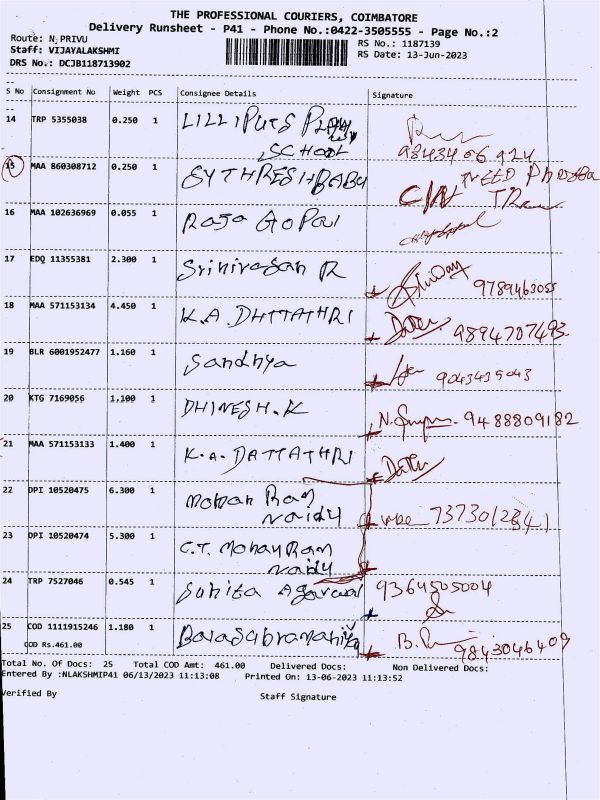 THE PROFESSIONAL COURIERS, COIMBATORE
Delivery Runsheet - P41 - Phone No.:0422-3505555 - Page No.:2
Route: N.PRIVU
RS No.: 1187139
Staff: VIJAYALAKSHMI
RS Date: 13-Jun-2023
DRS No.: DCJB118713902
S No Consignment No Weight PCS Consignee Details Signature
14 TRP 5355038 0.250 1 LILLIPUTS PLAY
SCHOOL
98434 06 924
15 MAA 860308712 0.250 1 SYTHRESHBABU
16 MAA 102636969 0.055 1 Raja GoPal
17 EDQ 11355381 2.300 1 Srinivasan R
9789463055
18 MAA 571153134 4.450 1 K.A.DHTTATHRI 9894707493
19 BLR 6001952477 1.160 1 Sandhya 9043435043
20 KTG 7169056 1.100 1 DHINESH.K 9488809182
21 MAA 571153133 1.400 1 K.A.DATTATHRI
22 DPI 10520475 6.300 1 Mohan Ram
Naidu
23 DPI 10520474 5.300 1 C.T. Mohan Ram
Naidu
24 TRP 7527046 0.545 1 Sunita Agarwal 9364505004
25 COD 1111915246 1.180 1 Balasubramaniya
COD Rs.461.00 9843046409
Total No. Of Docs: 25 Total COD Amt: 461.00 Delivered Docs: Non Delivered Docs:
Entered By :NLAKSHMIP41 06/13/2023 11:13:08 Printed On: 13-06-2023 11:13:52
Verified By Staff Signature